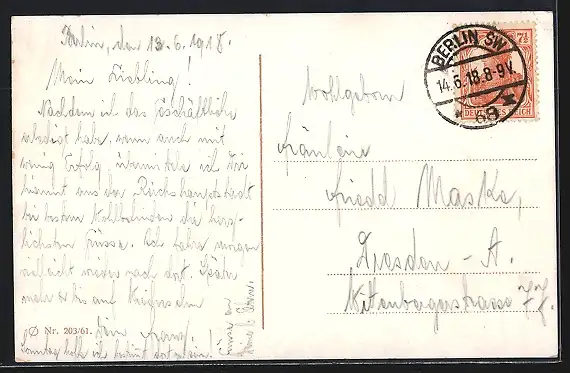 Berlin, den 13.6.1918.
Mein Liebling!
Nachdem ich das Geschäftliche
erledigt habe, wenn auch mit
wenig Erfolg übermittele ich Dir
hiermit aus der Reichshauptstadt
bei bestem Wohlbefinden die herz-
lichsten Grüsse. Ich fahre morgen
vielleicht wieder nach dort. Später
mehr & bis auf Wiedersehn
Dein
Sonntag hoffe ich bestimmt dort zu sein!
Grüsse an
Ø Nr. 203/61.
BERLIN SW
14.6.18.8-9V.
* 68
7½
DEUTSCHES REICH
Wohlgeborn
Fräulein
Friedel Maske,
Dresden - A.
Wittenbergerstrasse 77.